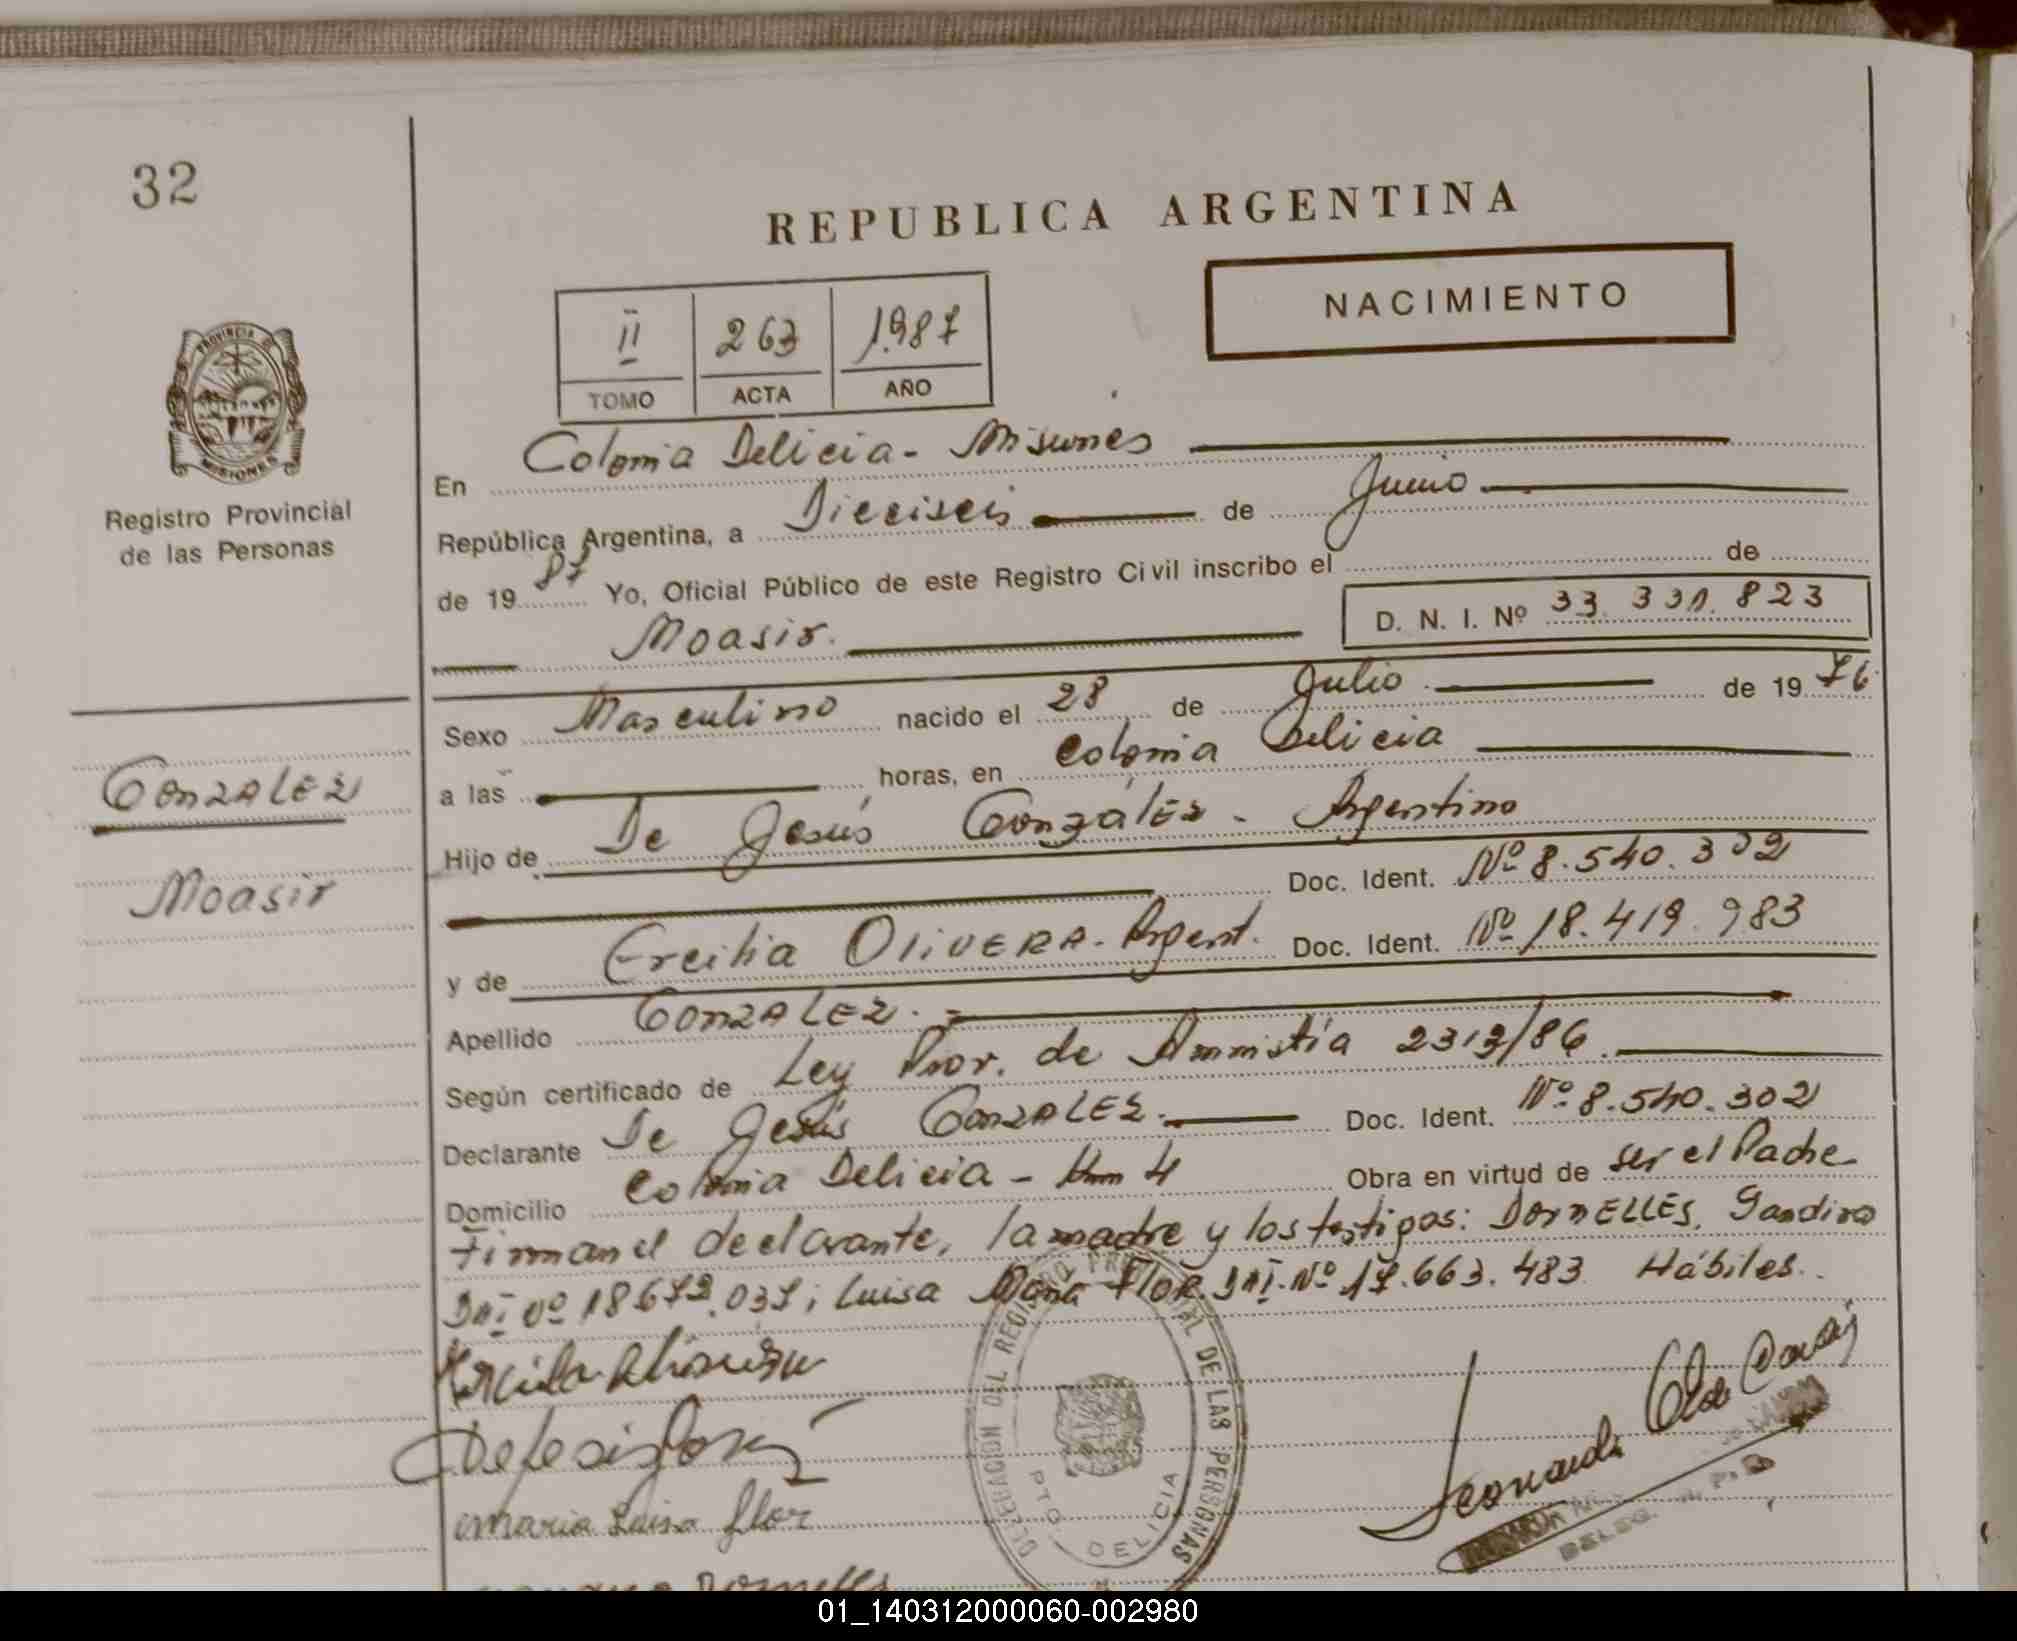 32
REPUBLICA ARGENTINA
NACIMIENTO
II 263 1987
TOMO ACTA AÑO
PROVINCIA DE
MISIONES
Registro Provincial
de las Personas
GONZALEZ
Moasir
En Colonia Delicia - Misiones
República Argentina, a Dieciseis de Junio
de 19 87 Yo, Oficial Público de este Registro Civil inscribo el de
Moasir. D. N. I. Nº 33. 331. 823
Sexo Masculino nacido el 28 de Julio de 19 76
a las horas, en Colonia Delicia
Hijo de De Jesús González - Argentino
Doc. Ident. Nº 8.540.302
y de Ercilia OLIVERA - Argent. Doc. Ident. Nº 18.419.983
Apellido GONZALEZ.
Según certificado de Ley Prov. de Amnistía 2313/86.
Declarante De Jesús GONZALEZ. Doc. Ident. Nº 8.540.302
Domicilio Colonia Delicia - Km 4 Obra en virtud de ser el Padre
Firman el declarante, la madre y los testigos: DORNELLES,
DNI Nº 18.672.037; Luisa María FLOR. DNI. Nº 17.663.483 Hábiles.
maria Luisa flor
Dornelles
DELEGACION DEL REGISTRO PROVINCIAL DE LAS PERSONAS
PTO. DELICIA
Leonardo
DELEG.
01_140312000060-002980